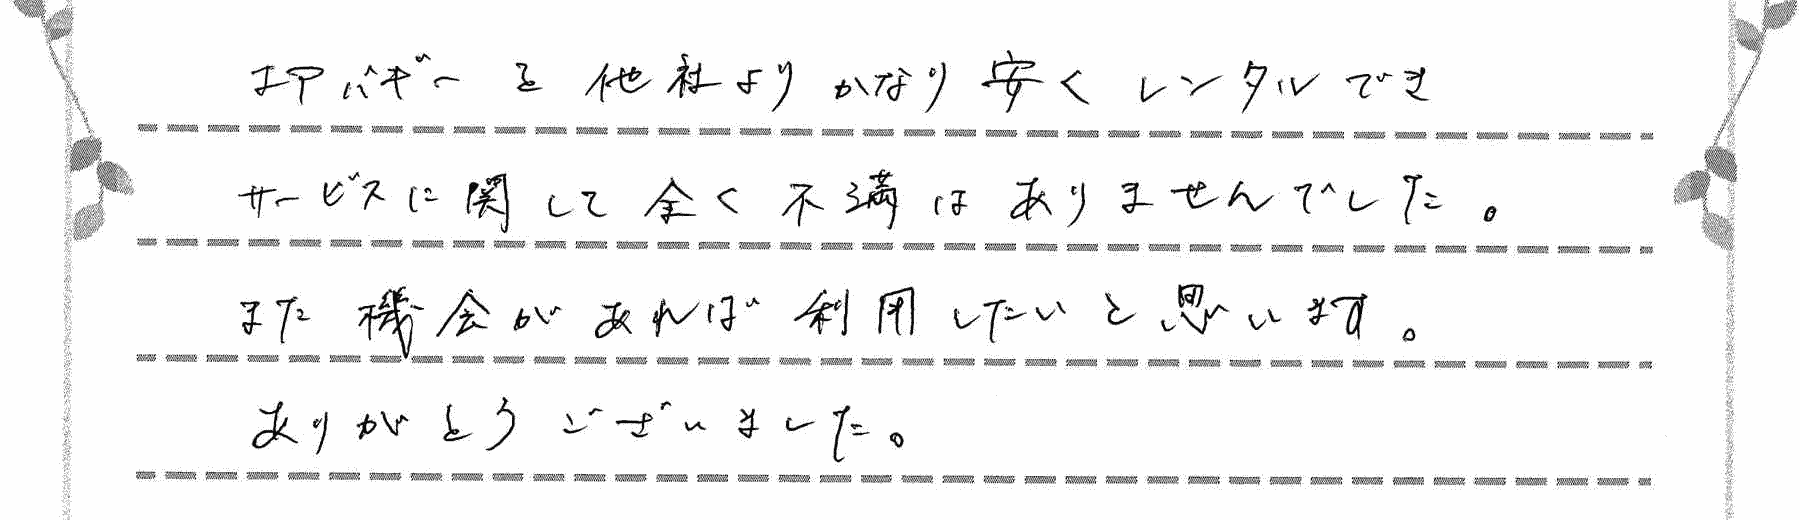 エアバギーを他社よりかなり安くレンタルでき
サービスに関して全く不満はありませんでした。
また機会があれば利用したいと思います。
ありがとうございました。